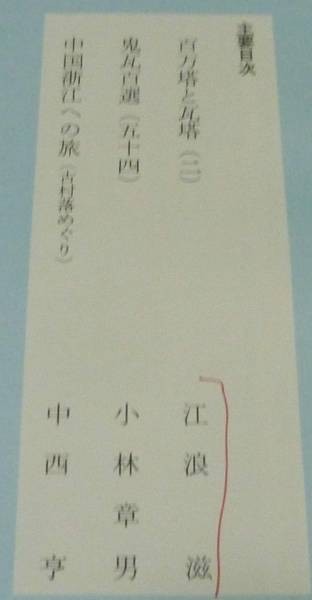 主要目次
百万塔と瓦塔（二） 江浪 滋
鬼瓦百選（五十四） 小林章男
中国浙江への旅（古村落めぐり） 中西 亨